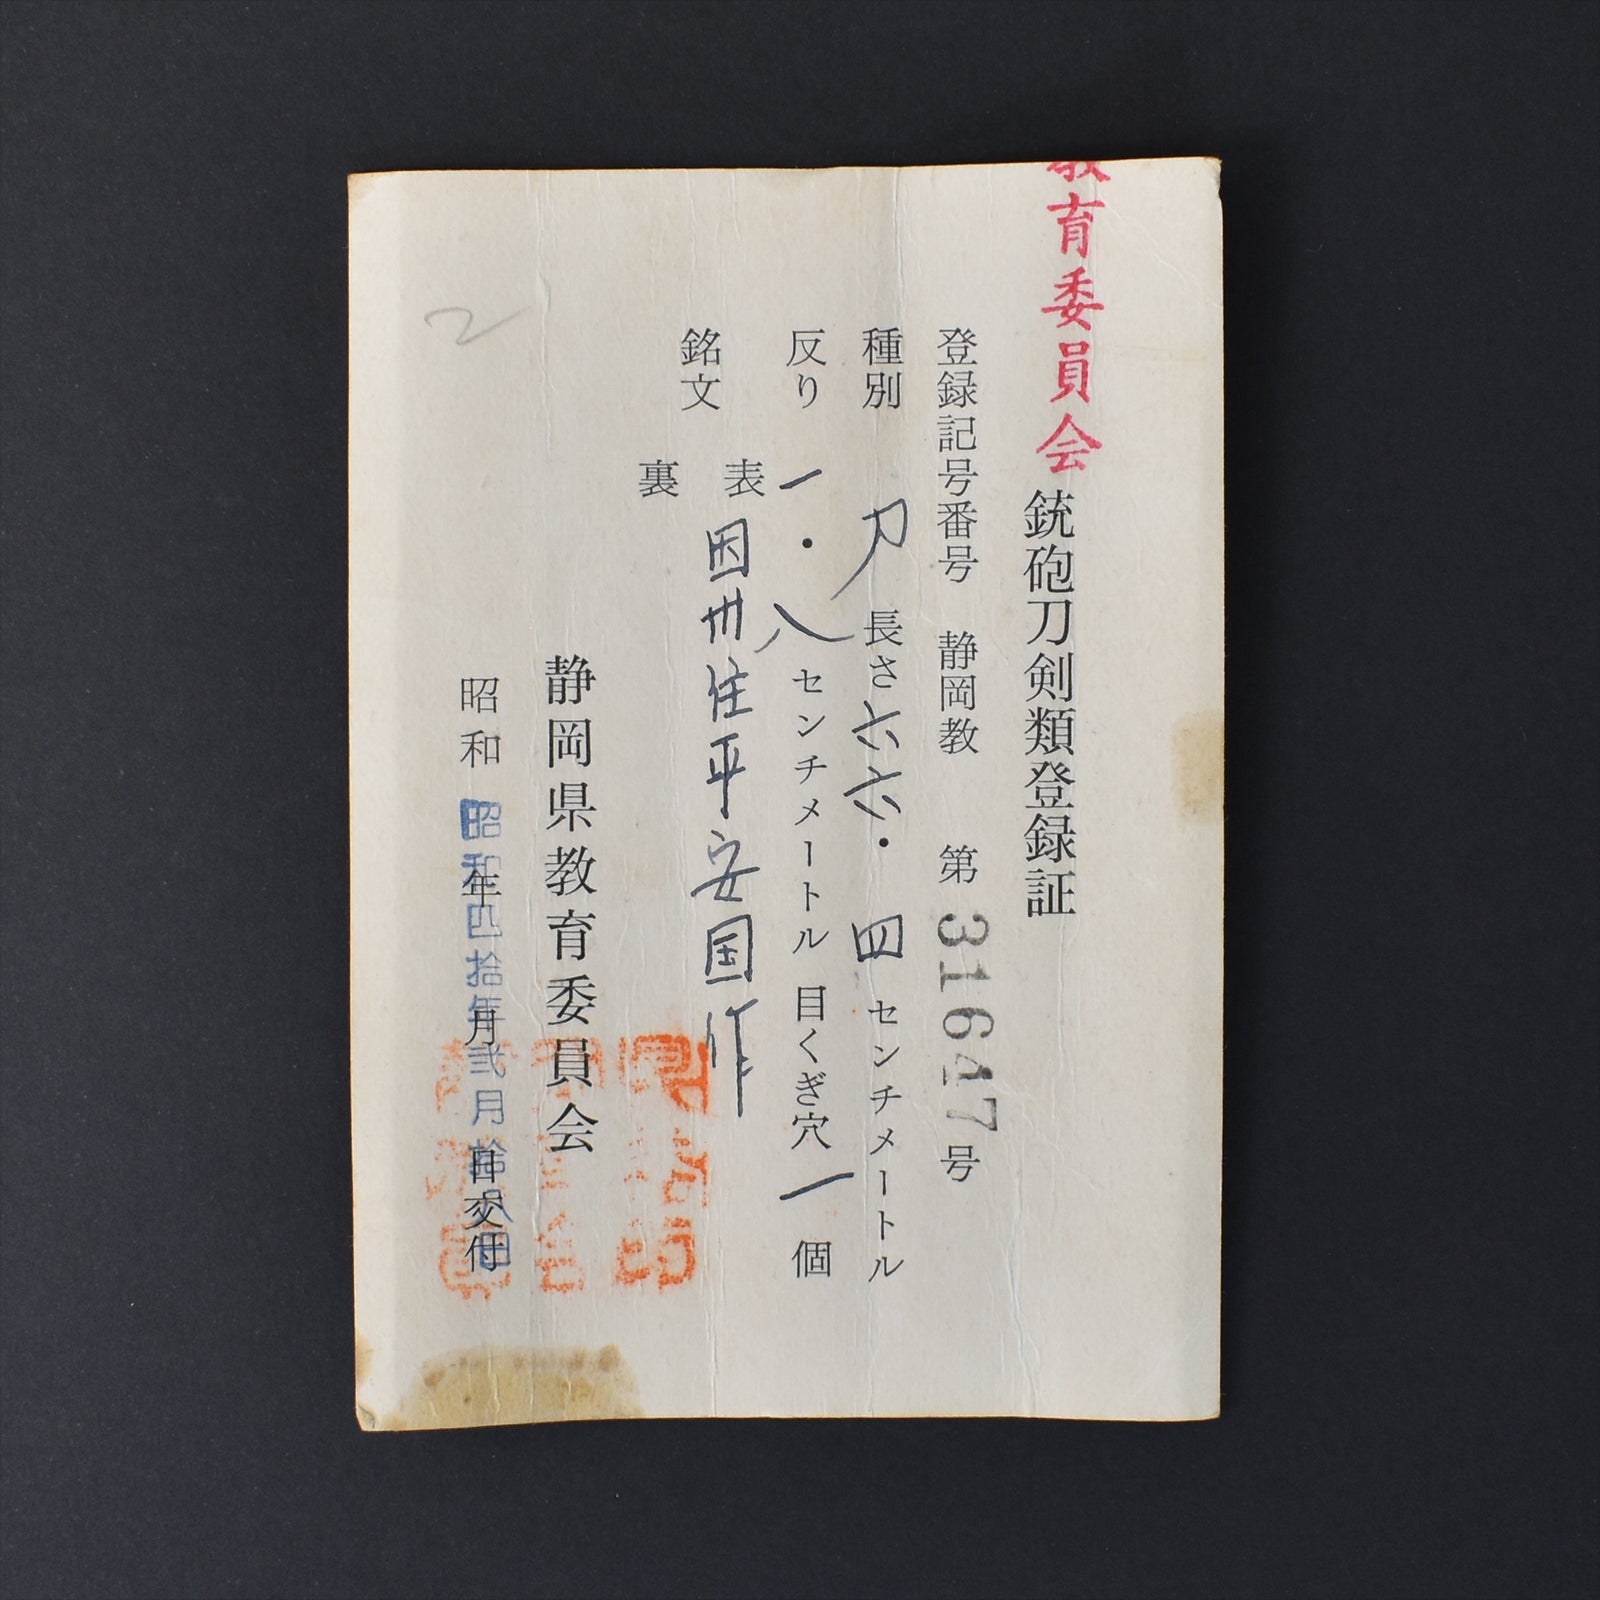 教育委員会
銃砲刀剣類登録証
登録記号番号 静岡教 第31647号
種別 刀 長さ六六・四センチメートル
反り 一・八センチメートル 目くぎ穴 一 個
銘文 表 因州住平安国作
裏
静岡県教育委員会
昭和 年 月 日交付
昭和四拾年弐月拾八日